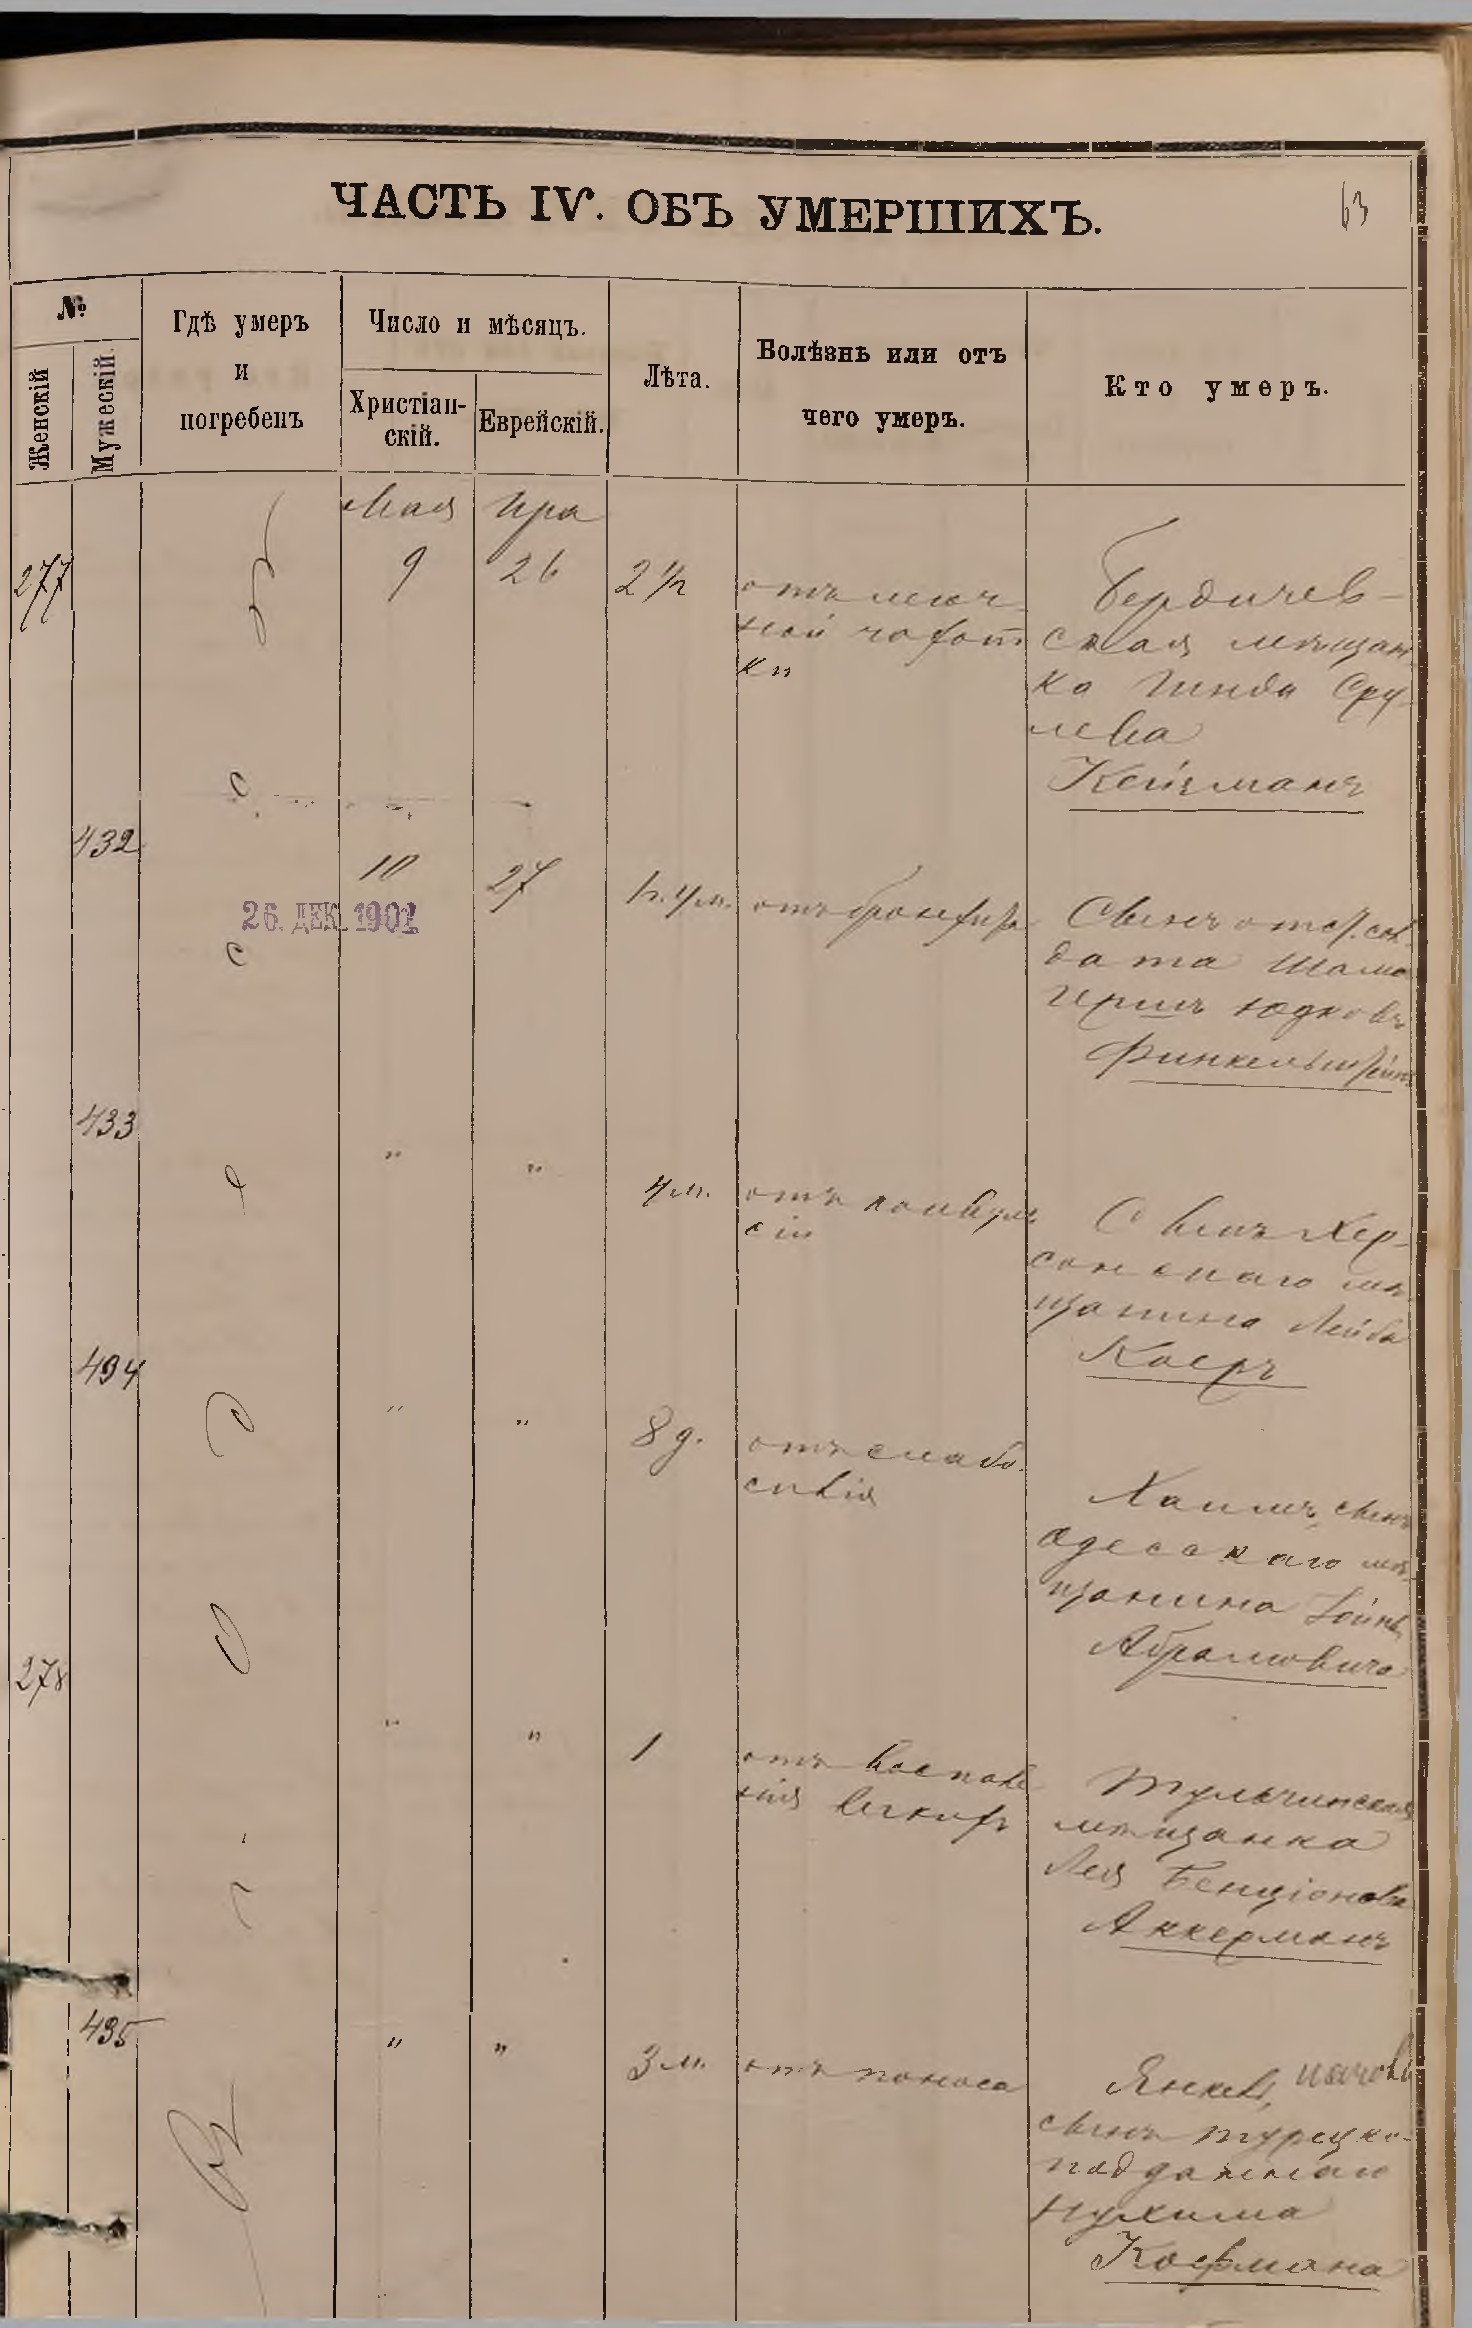 63
ЧАСТЬ IV. ОБЪ УМЕРШИХЪ.
№
Женскій
Мужескій.
Гдѣ умеръ
и
погребенъ
Число и мѣсяцъ.
Христіан-
скій.
Еврейскій.
Лѣта.
Болѣзнь или отъ
чего умеръ.
Кто умеръ.
Мая Ира
277 9 26 2 1/2
отъ легоч-
ной чахот
ки
Бердичев-
ская мѣщан
ка Гинда Сру-
лева
Кейзманъ
432 10 27
26. ДЕК. 1901
отъ бронхита
Сынъ отст. сол
дата Шама
Гершъ Юдковъ
Финкельштейнъ
433 " " 4 м.
отъ конвуль
сіи
Сынъ Хер-
сонскаго мѣ
щанина Лейба
Касръ
434 " " 8 д.
отъ слабо
силія
Хаимъ, сынъ
Одесскаго мѣ
щанина
Абрамовича
278 " " 1
отъ воспале
нія легкихъ
Тульчинская
мѣщанка
Лея Бенціонова
Аккерманъ
435 " " 3 м.
отъ поноса
Янкель,
сынъ турецко-
подданнаго
Нухима
Кофмана
Въ г. Одессѣ